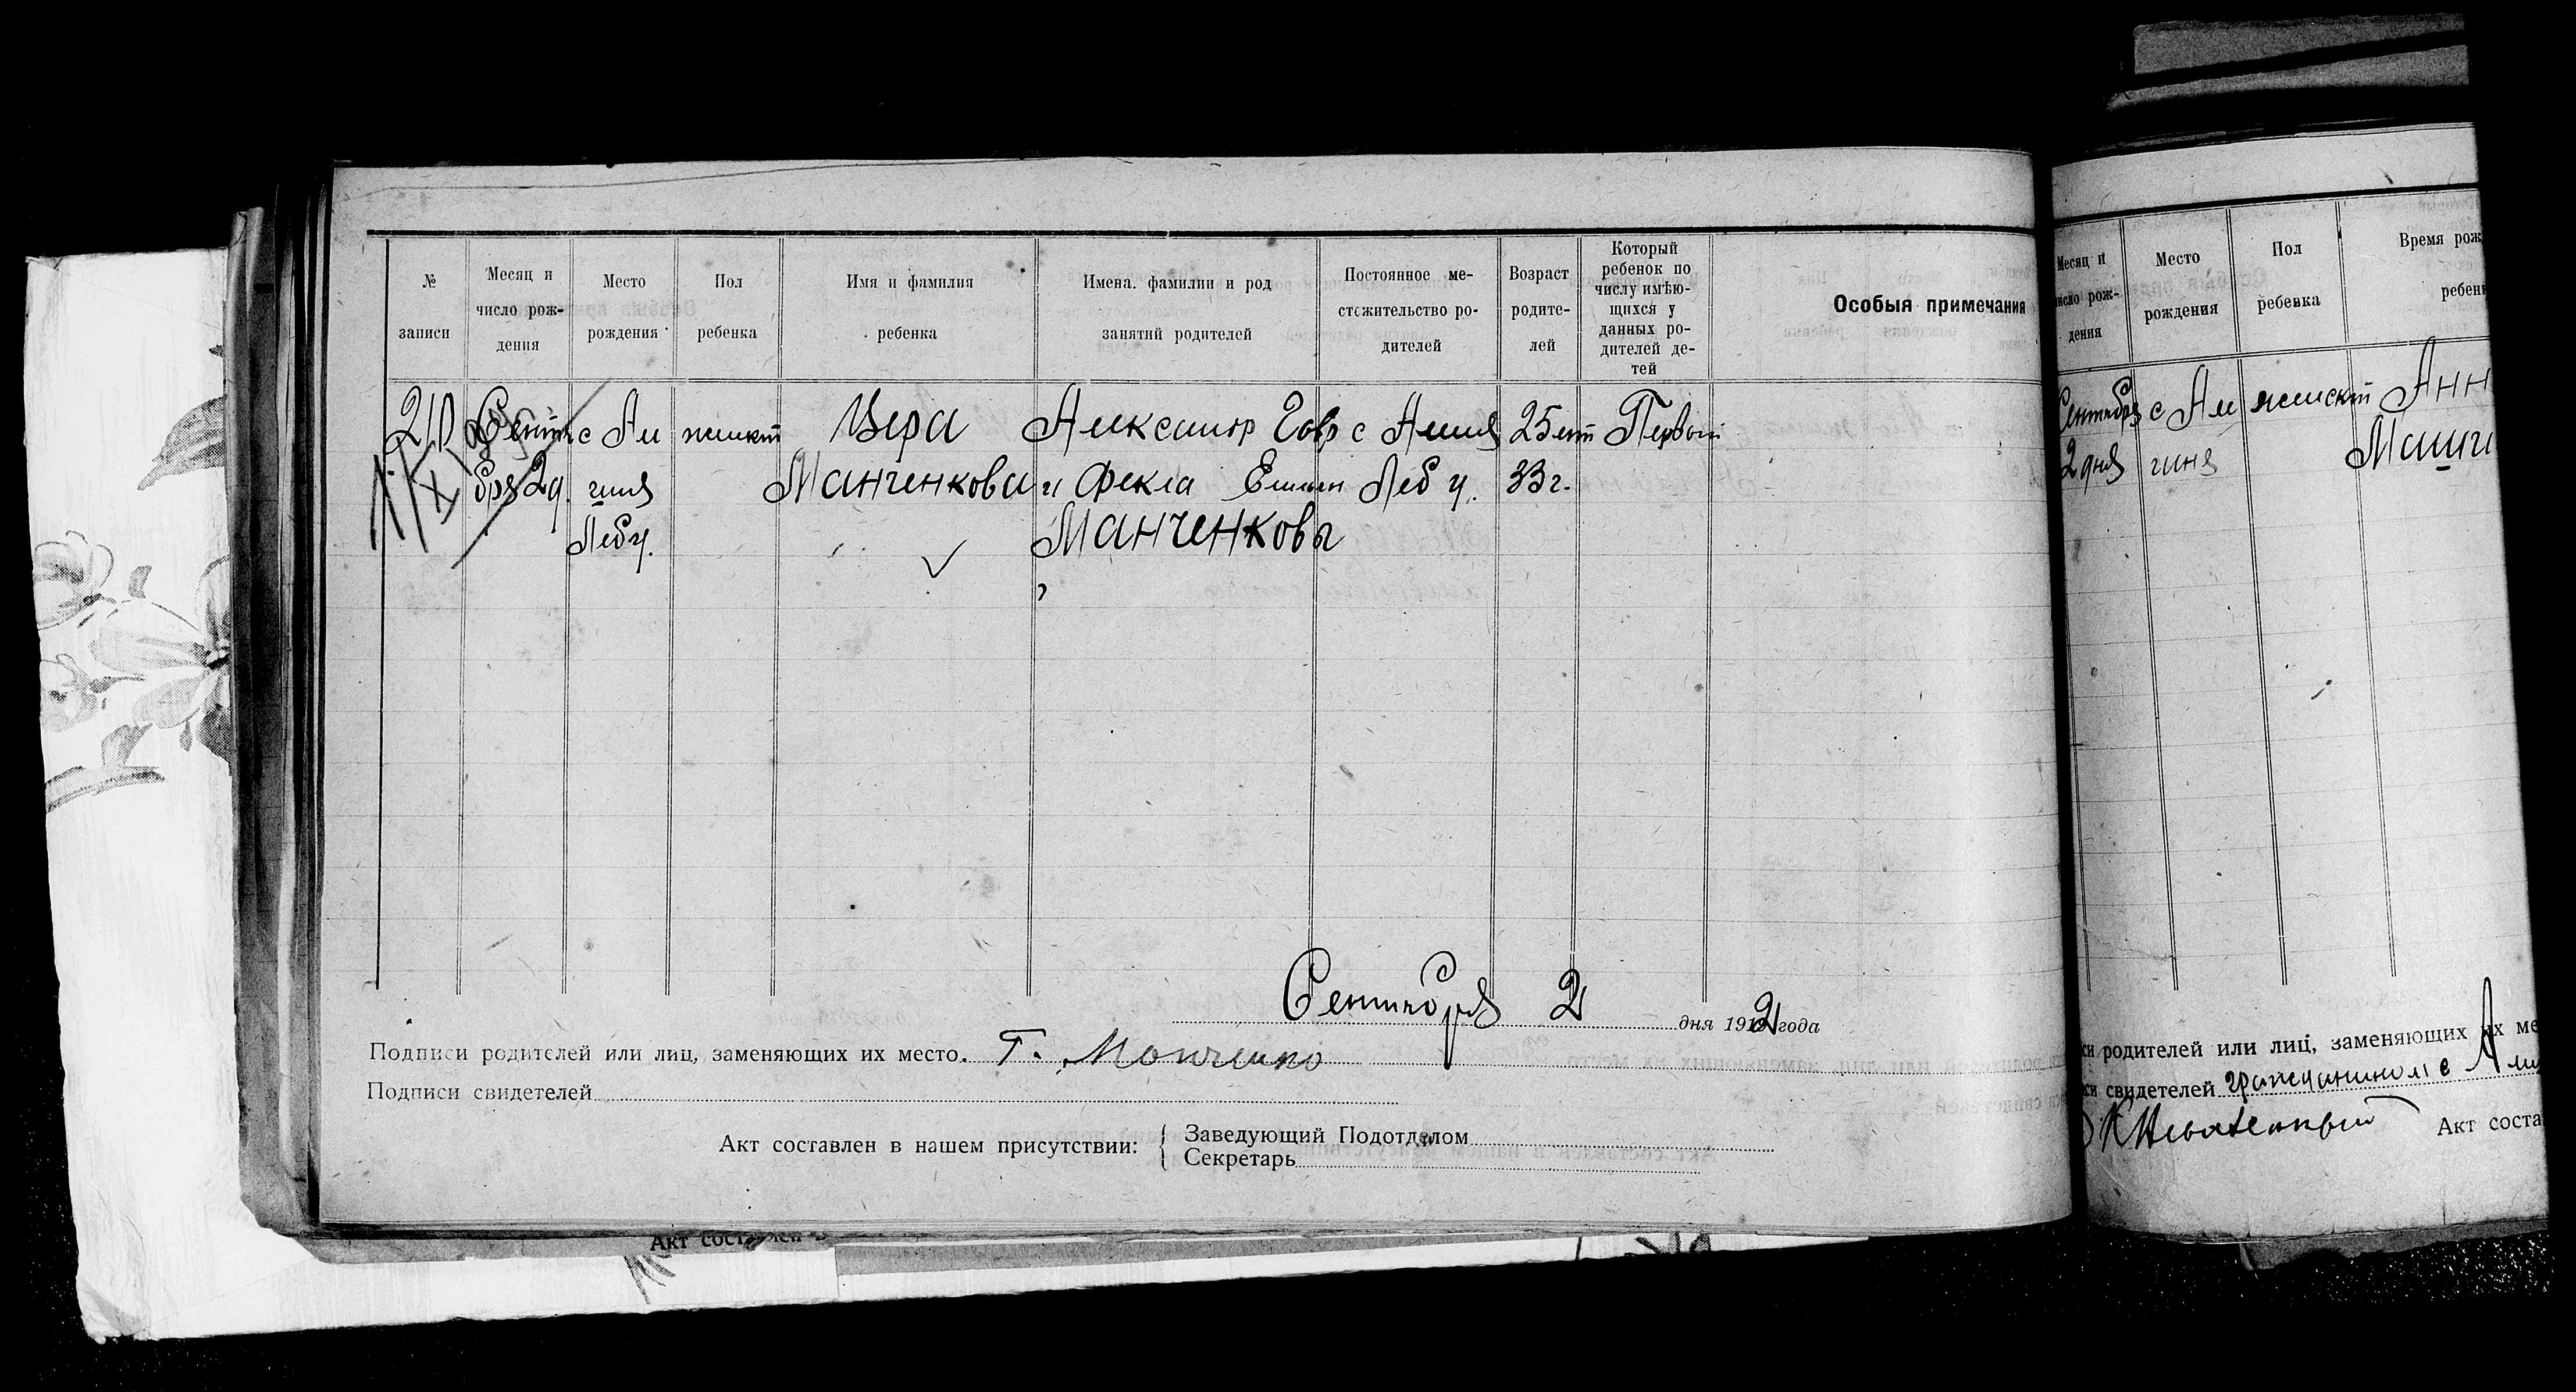 № записи
Месяц и число рож-дения
Место рождения
Пол ребенка
Имя и фамилия ребенка
Имена. фамилии и род занятий родителей
Постоянное ме-стожительство ро-дителей
Возраст родите-лей
Который ребенок по числу имѣю-щихся у данных ро-дителей де-тей
Особыя примечания
210 Сентя с Ам женский Вера Александр Гавр с Амня 25 лет Первый
бря 2 д. Манченкова и Фекла Леб у. 33 г.
Леб у. Манченковы
Сентября 2 дня 1912 года
Подписи родителей или лиц, заменяющих их место. Г. Манченко
Подписи свидетелей
Акт составлен в нашем присутствии: { Заведующий Подотделом
Секретарь
Месяц и число рож-дения
Место рождения
Пол ребенка
Время рож
ребен
Сентября с Ам женский Анн
2 дня
си родителей или лиц, заменяющих их ме
си свидетелей гражданином с
Акт соста
Акт составлен в